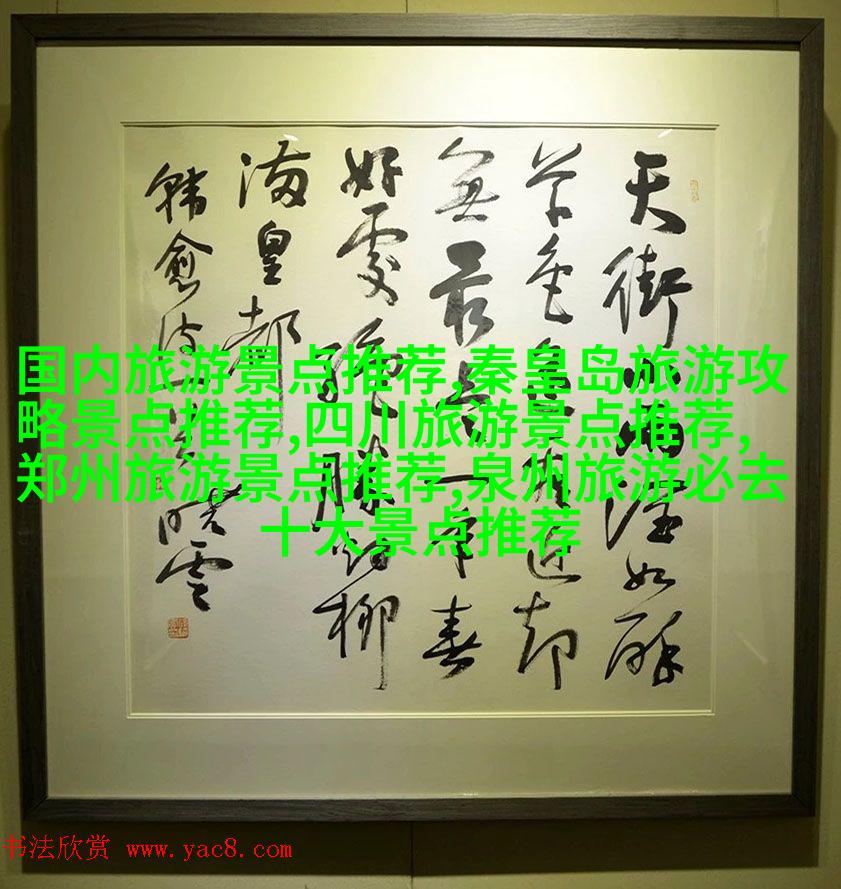 国内旅游景点推荐,秦皇岛旅游攻
略景点推荐,四川旅游景点推荐,
郑州旅游景点推荐,泉州旅游必去
十大景点推荐
天街小雨润如酥
草色遥看近却
無最是一年春
好處絕勝烟柳
满皇都
韩愈诗
书法欣赏 www.yac8.com